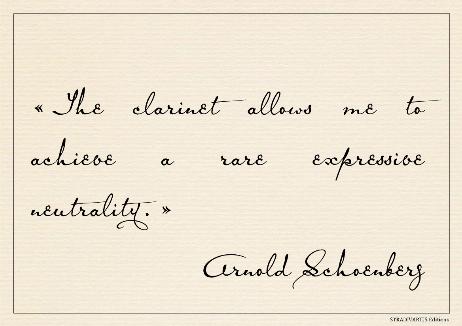 « The clarinet allows me to
achieve a rare expressive
neutrality. »
Arnold Schoenberg
STRADIVARIUS Editions